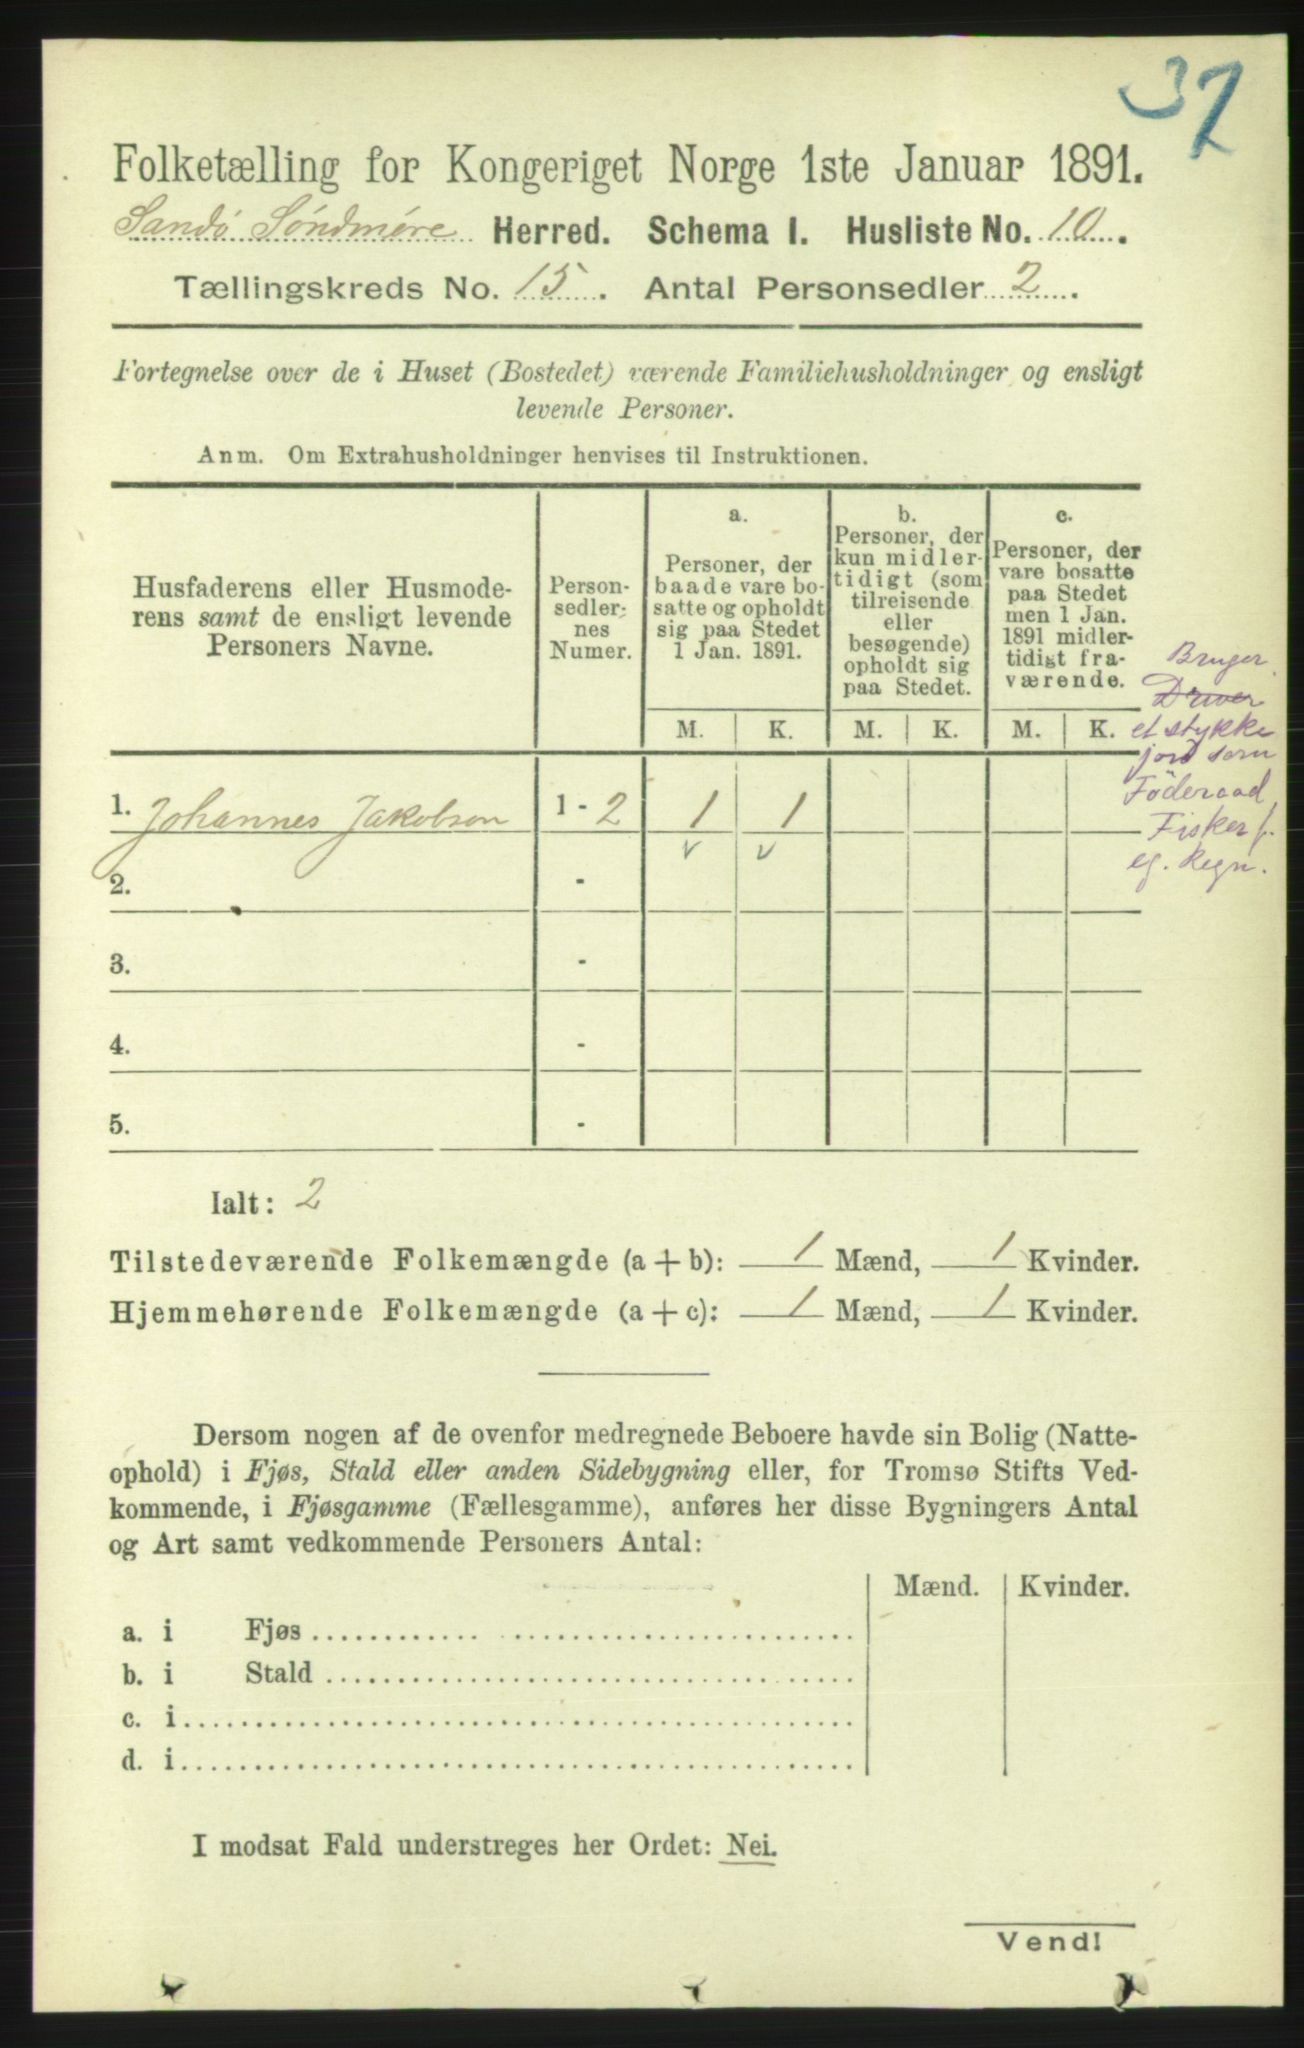 37
Folketælling for Kongeriget Norge 1ste Januar 1891.
Sandö Söndmöre Herred. Schema I. Husliste No. 10.
Tællingskreds No. 15. Antal Personsedler 2.
Fortegnelse over de i Huset (Bostedet) værende Familiehusholdninger og ensligt
levende Personer.
Anm. Om Extrahusholdninger henvises til Instruktionen.
Husfaderens eller Husmode-
rens samt de ensligt levende
Personers Navne.
Person-
sedler-
nes
Numer.
a.
Personer, der
baade vare bo-
satte og opholdt
sig paa Stedet
1 Jan. 1891.
b.
Personer, der
kun midler-
tidigt (som
tilreisende
eller
besøgende)
opholdt sig
paa Stedet.
c.
Personer, der
vare bosatte
paa Stedet
men 1 Jan.
1891 midler-
tidigt fra-
værende.
M. K. M. K. M. K.
Bruger
Driver
et stykke
jord som
Föderaad,
Fisker f.
eg. Regn.
1. Johannes Jakobson 1 - 2 1 1
2. -
3. -
4. -
5. -
Ialt: 2
Tilstedeværende Folkemængde (a + b): 1 Mænd, 1 Kvinder.
Hjemmehørende Folkemængde (a + c): 1 Mænd, 1 Kvinder.
Dersom nogen af de ovenfor medregnede Beboere havde sin Bolig (Natte-
ophold) i Fjøs, Stald eller anden Sidebygning eller, for Tromsø Stifts Ved-
kommende, i Fjøsgamme (Fællesgamme), anføres her disse Bygningers Antal
og Art samt vedkommende Personers Antal:
Mænd. Kvinder.
a. i Fjøs
b. i Stald
c. i
d. i
I modsat Fald understreges her Ordet: Nei.
Vend!